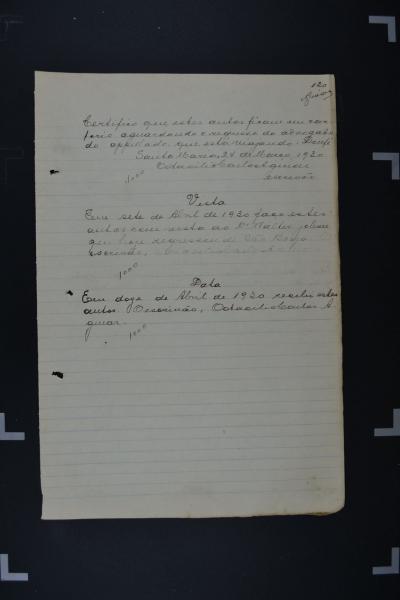 120
Certifico que estes autos ficam em car-
torio aguardando o regresso do advogado
do appellado, que está viajando. Dou fé
Santa Maria, 24 de Março 1930
Octacilio Carlos Aguiar
escrivão
1000
Vista
Em sete de Abril de 1930 faço estes
autos com vista ao Dr. Walter
que hoje regressou de São
escrivão,
1000
Data
Em doze de Abril de 1930 recebi estes
autos. O escrivão, Octacilio Carlos A-
guiar.
1000